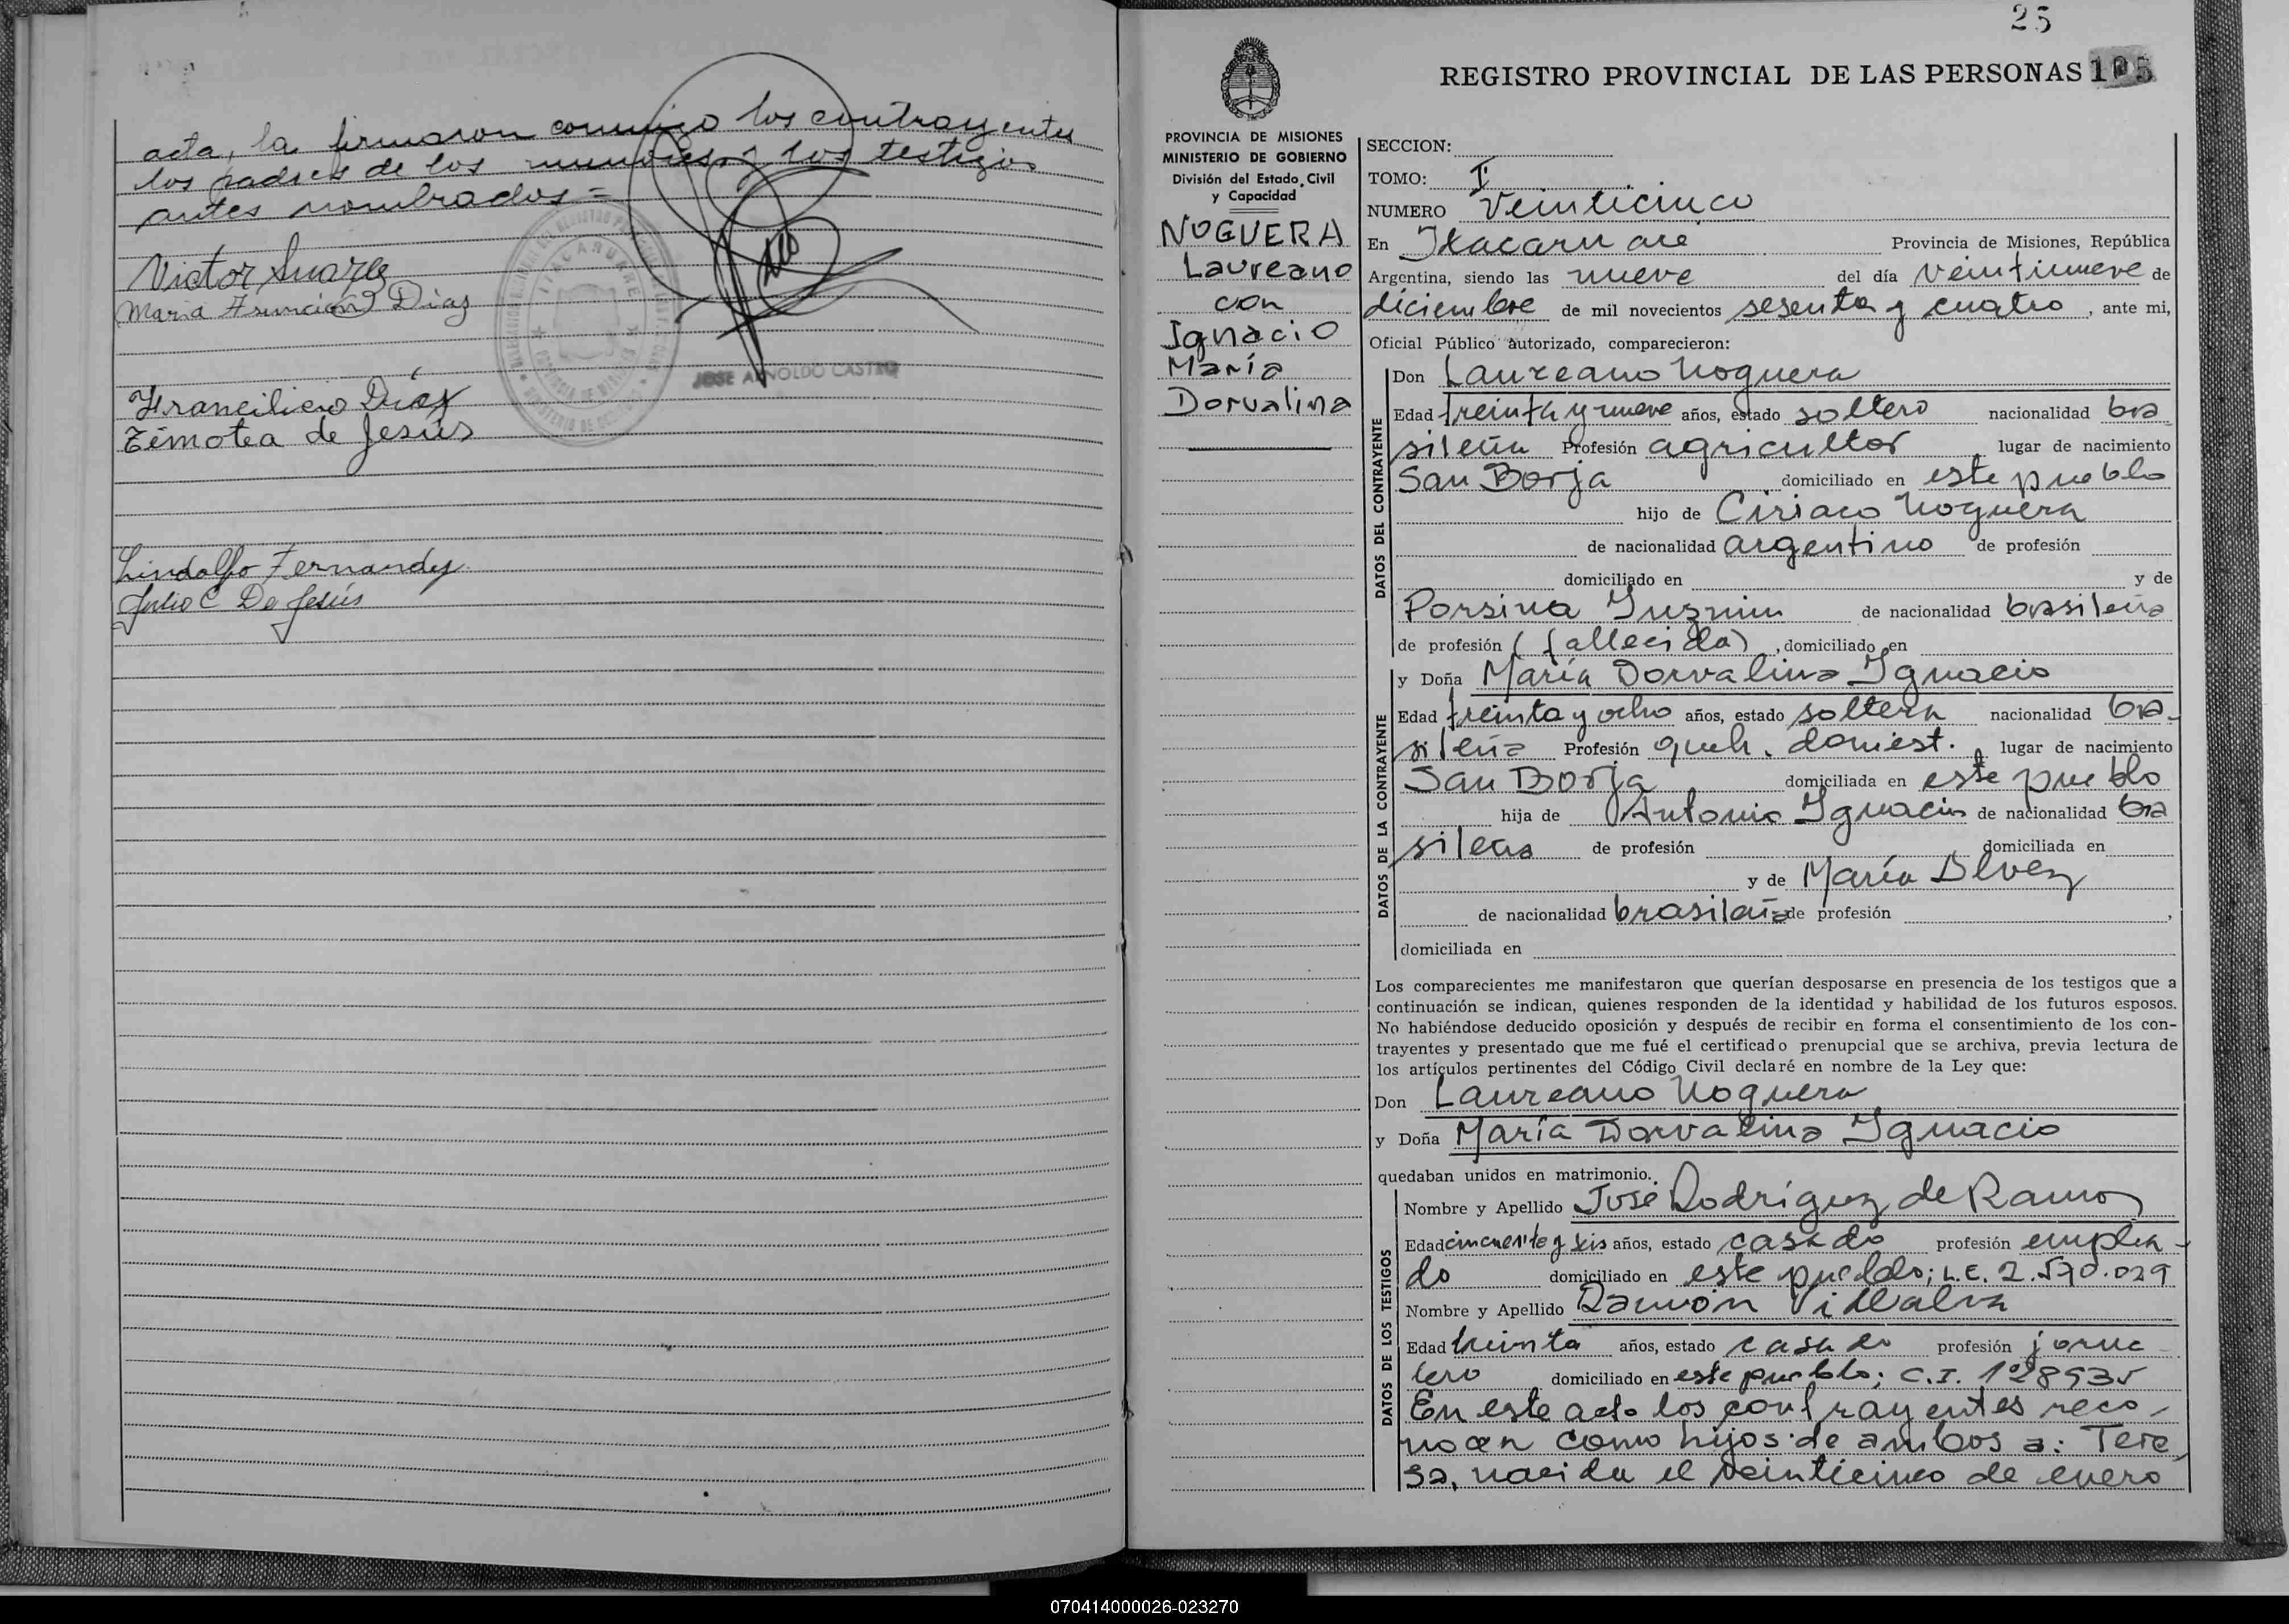 acta, la firmaron conmigo los contrayentes
los padres de los menores y los testigos
antes nombrados =
Victor Suarez
Maria Asunción Diaz
JOSE ARNOLDO CASTRO
Francilicio Diaz
Timotea de Jesús
Lindolfo Fernandez
Julio C De Jesús
25
REGISTRO PROVINCIAL DE LAS PERSONAS 105
PROVINCIA DE MISIONES
MINISTERIO DE GOBIERNO
División del Estado Civil
y Capacidad
NOGUERA
Laureano
con
Ignacio
María
Dorvalina
SECCION:
TOMO: I
NUMERO Veinticinco
En Itacaruaré Provincia de Misiones, República
Argentina, siendo las nueve del día veintinueve de
diciembre de mil novecientos sesenta y cuatro, ante mi,
Oficial Público autorizado, comparecieron:
DATOS DEL CONTRAYENTE
Don Laureano Noguera
Edad treinta y nueve años, estado soltero nacionalidad bra
sileña Profesión agricultor lugar de nacimiento
San Borja domiciliado en este pueblo
hijo de Ciriaco Noguera
de nacionalidad argentino de profesión
domiciliado en y de
Porsina de nacionalidad brasileña
de profesión (fallecida), domiciliado en
DATOS DE LA CONTRAYENTE
y Doña María Dorvalina Ignacio
Edad treinta y ocho años, estado soltera nacionalidad bra-
sileña Profesión queh. domest. lugar de nacimiento
San Borja domiciliada en este pueblo
hija de Antonio Ignacio de nacionalidad bra
sileña de profesión domiciliada en
y de María Alvez
de nacionalidad brasileña de profesión ,
domiciliada en
Los comparecientes me manifestaron que querían desposarse en presencia de los testigos que a
continuación se indican, quienes responden de la identidad y habilidad de los futuros esposos.
No habiéndose deducido oposición y después de recibir en forma el consentimiento de los con-
trayentes y presentado que me fué el certificado prenupcial que se archiva, previa lectura de
los artículos pertinentes del Código Civil declaré en nombre de la Ley que:
Don Laureano Noguera
y Doña María Dorvalina Ignacio
quedaban unidos en matrimonio.
DATOS DE LOS TESTIGOS
Nombre y Apellido José Rodriguez de Ramos
Edad cincuenta y seis años, estado casado profesión emplea-
do domiciliado en este pueblo; L.E. 2.570.029
Nombre y Apellido Ramón Villalva
Edad treinta años, estado casado profesión jorna-
lero domiciliado en este pueblo; C.I. 128935
En este acto los contrayentes reco-
nocen como hijos de ambos a: Tere
sa, nacida el veinticinco de enero
070414000026-023270